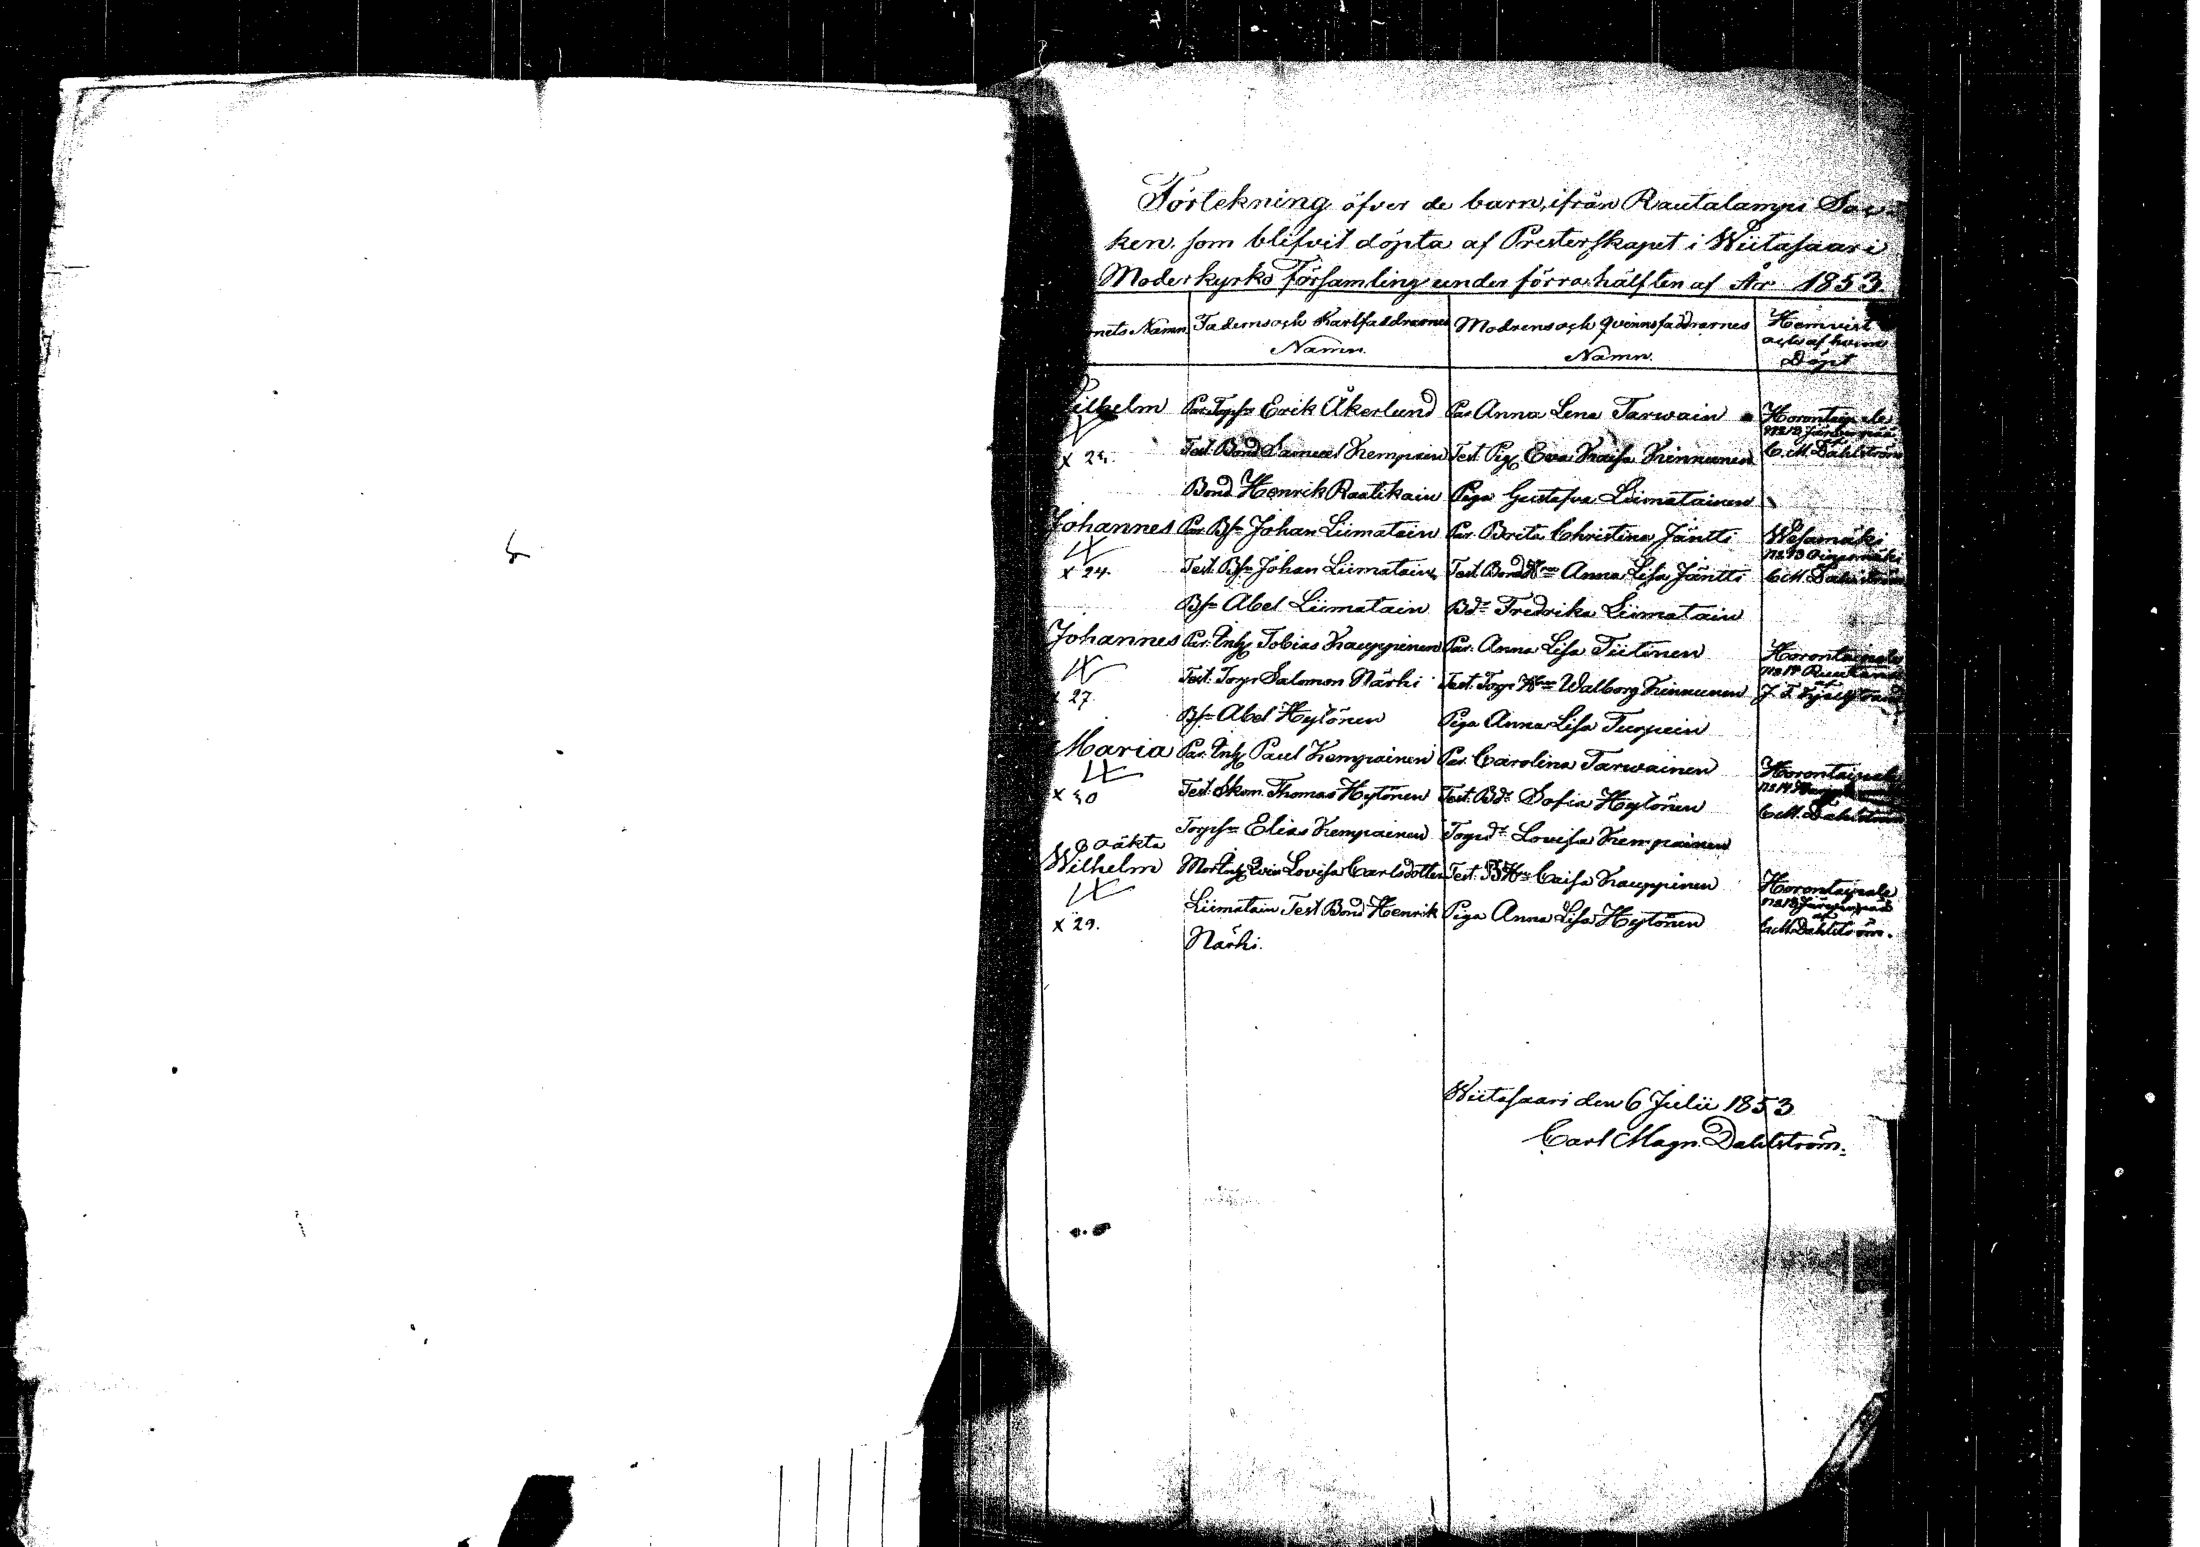 Förtekning öfver de barn, ifrån Rautalampi Soc-
ken, som blifvit döpta af Presterskapet i Wiitasaari
Moderkyrko Församling under förra hälften af År 1853.
nets Namn
Faderns och Karlfaddrarnes
Namn.
Modrens och qvinnsfaddrarnes
Namn.
Hemvist
och af hvem
Döpt
Wilhelm Par. Torpsn Erik Åkerlund Par Anna Lena Tarwain Horontaipale
Test. Bond Samuel Kempain Test. Pig Eva Kaisa Kinnunen C. M. Dahlström
Bond Henrik Raatikain Piga Gustafva Liimatainen
Johannes Par. Bsn Johan Liimatain Par. Brita Christina Jäntti Wesamäki
x 24. Test. Bsn Johan Liimatain Test. Bond Hun Anna Lisa Jäntti C. M. Dahlström
Bsn Abel Liimatain Bdr Fredrika Liimatain
Johannes Par. Inh Tobias Kauppinen Par. Anna Lisa Tiitinen Horontaipale
x 27. Test. Torp Salomon Närhi Test. Torp Hun Walborg Kinnunen
Bsn Abel Hytönen Piga Anna Lisa Turpein
Maria Par. Inh Paul Kempainen Par. Carolina Tarwainen Horontaipale
x 30 Test. Skom. Thomas Hytönen Test. Bdr Sofia Hytönen C. M. Dahlström
Torpsn Elias Kempainen Torpdr Lovisa Kempainen
oäkta
Wilhelm Mor Inh Qvin Lovisa Carlsdotter Test. B Hu Caisa Kauppinen Horontaipale
x 29. Liimatain Test Bond Henrik Piga Anna Lisa Hytönen C. M. Dahlström.
Närhi.
Wiitasaari den 6 Julii 1853
Carl Magn. Dahlström.